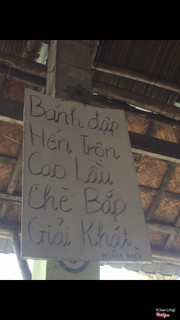 Bánh đập
Hến Trộn
Cao Lầu
Chè Bắp
Giải Khát